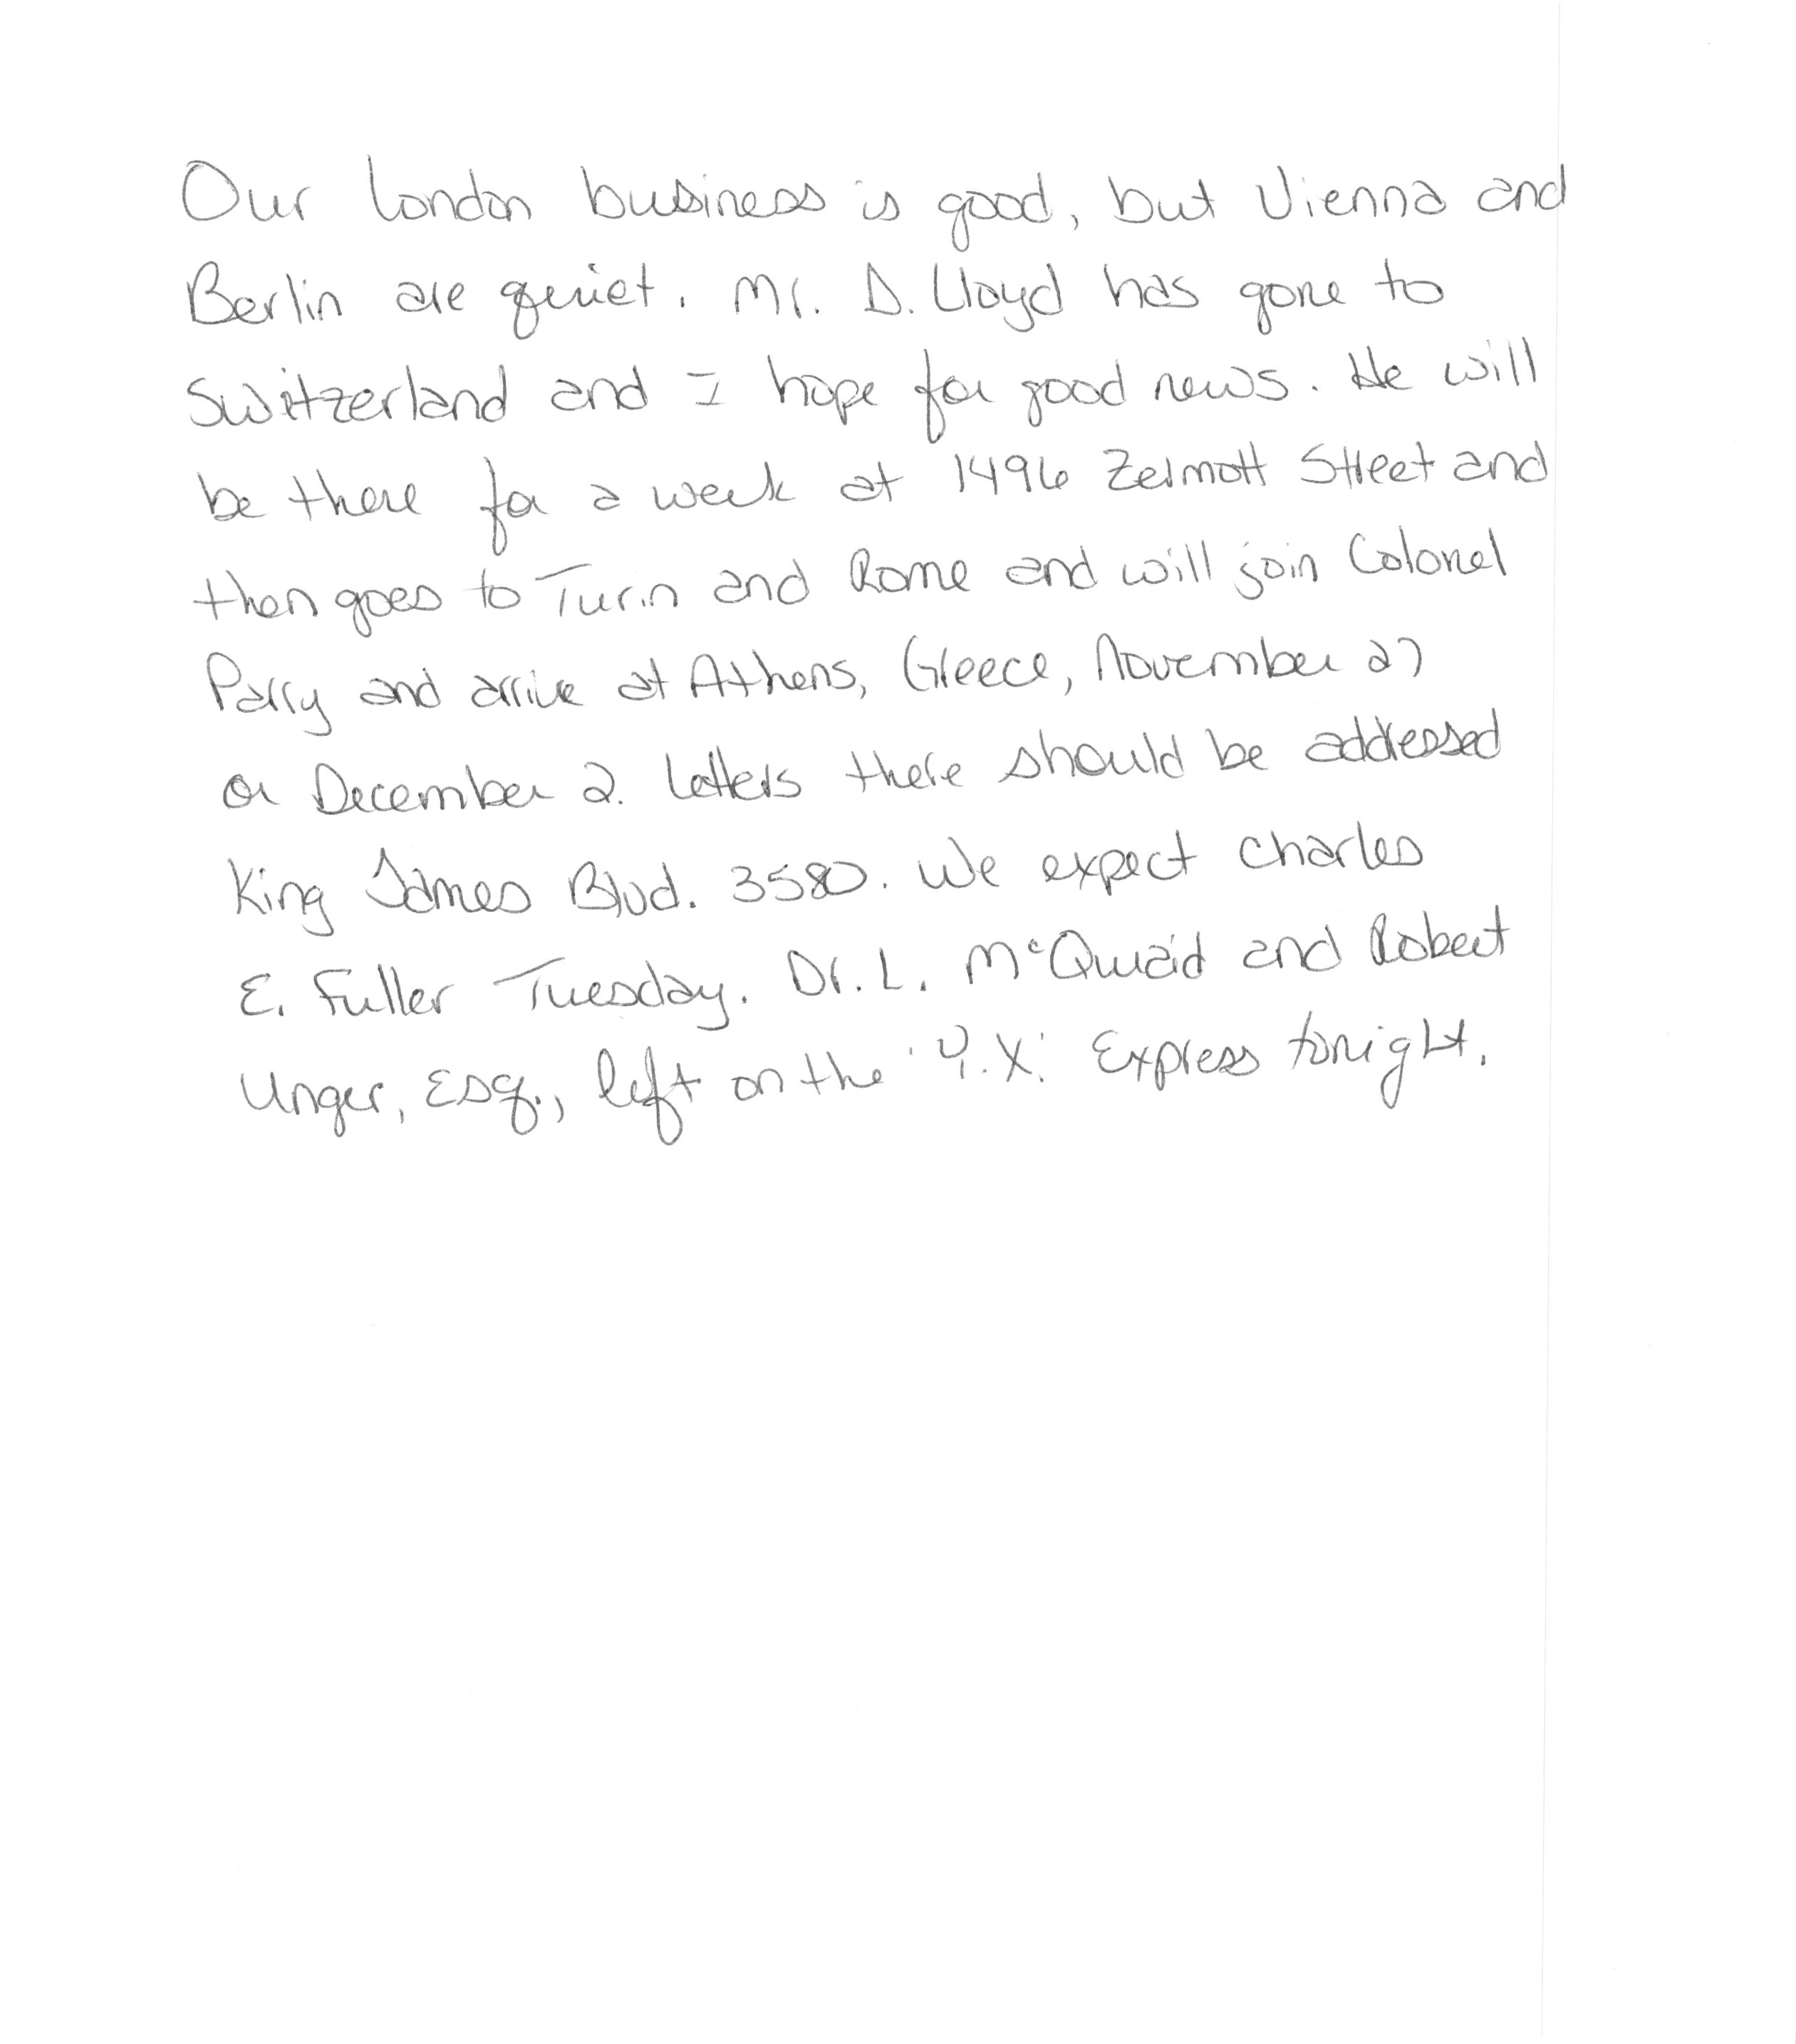 Our London business is good, but Vienna and
Berlin are quiet. Mr. D. Lloyd has gone to
Switzerland and I hope for good news. He will
be there for a week at 1496 Zermott Street and
then goes to Turin and Rome and will join Colonel
Parry and arrive at Athens, Greece, November 27
or December 2. Letters there should be addressed
King James Blvd. 3580. We expect Charles
E. Fuller Tuesday. Dr. L. McQuaid and Robert
Unger, Esq., left on the 'Y.X.' Express tonight.